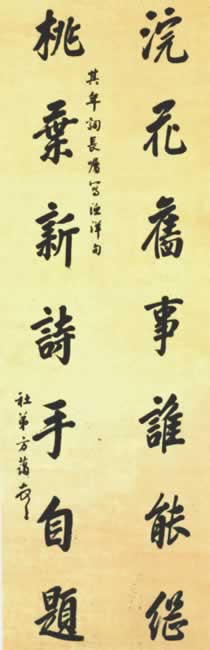 浣花舊事誰能繼
其年詞長屬寫漁洋句
桃葉新詩手自題
社弟方